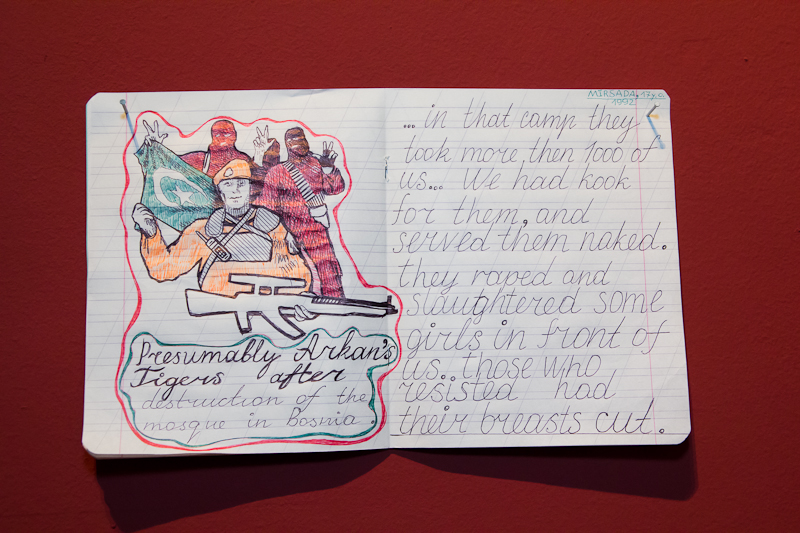 Presumably Arkan's
Tigers after
destruction of the
mosque in Bosnia.
MIRSADA, 17y.o.
1992
... in that camp they
took more, then 1000 of
us... We had kook
for them, and
served them naked.
they raped and
slaughtered some
girls in front of
us.. those who
resisted had
their breasts cut.